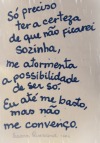 Só preciso
ter a certeza
de que não ficarei
sozinha,
me atormenta
a possibilidade
de ser só.
Eu até me basto,
mas não
me convenço.